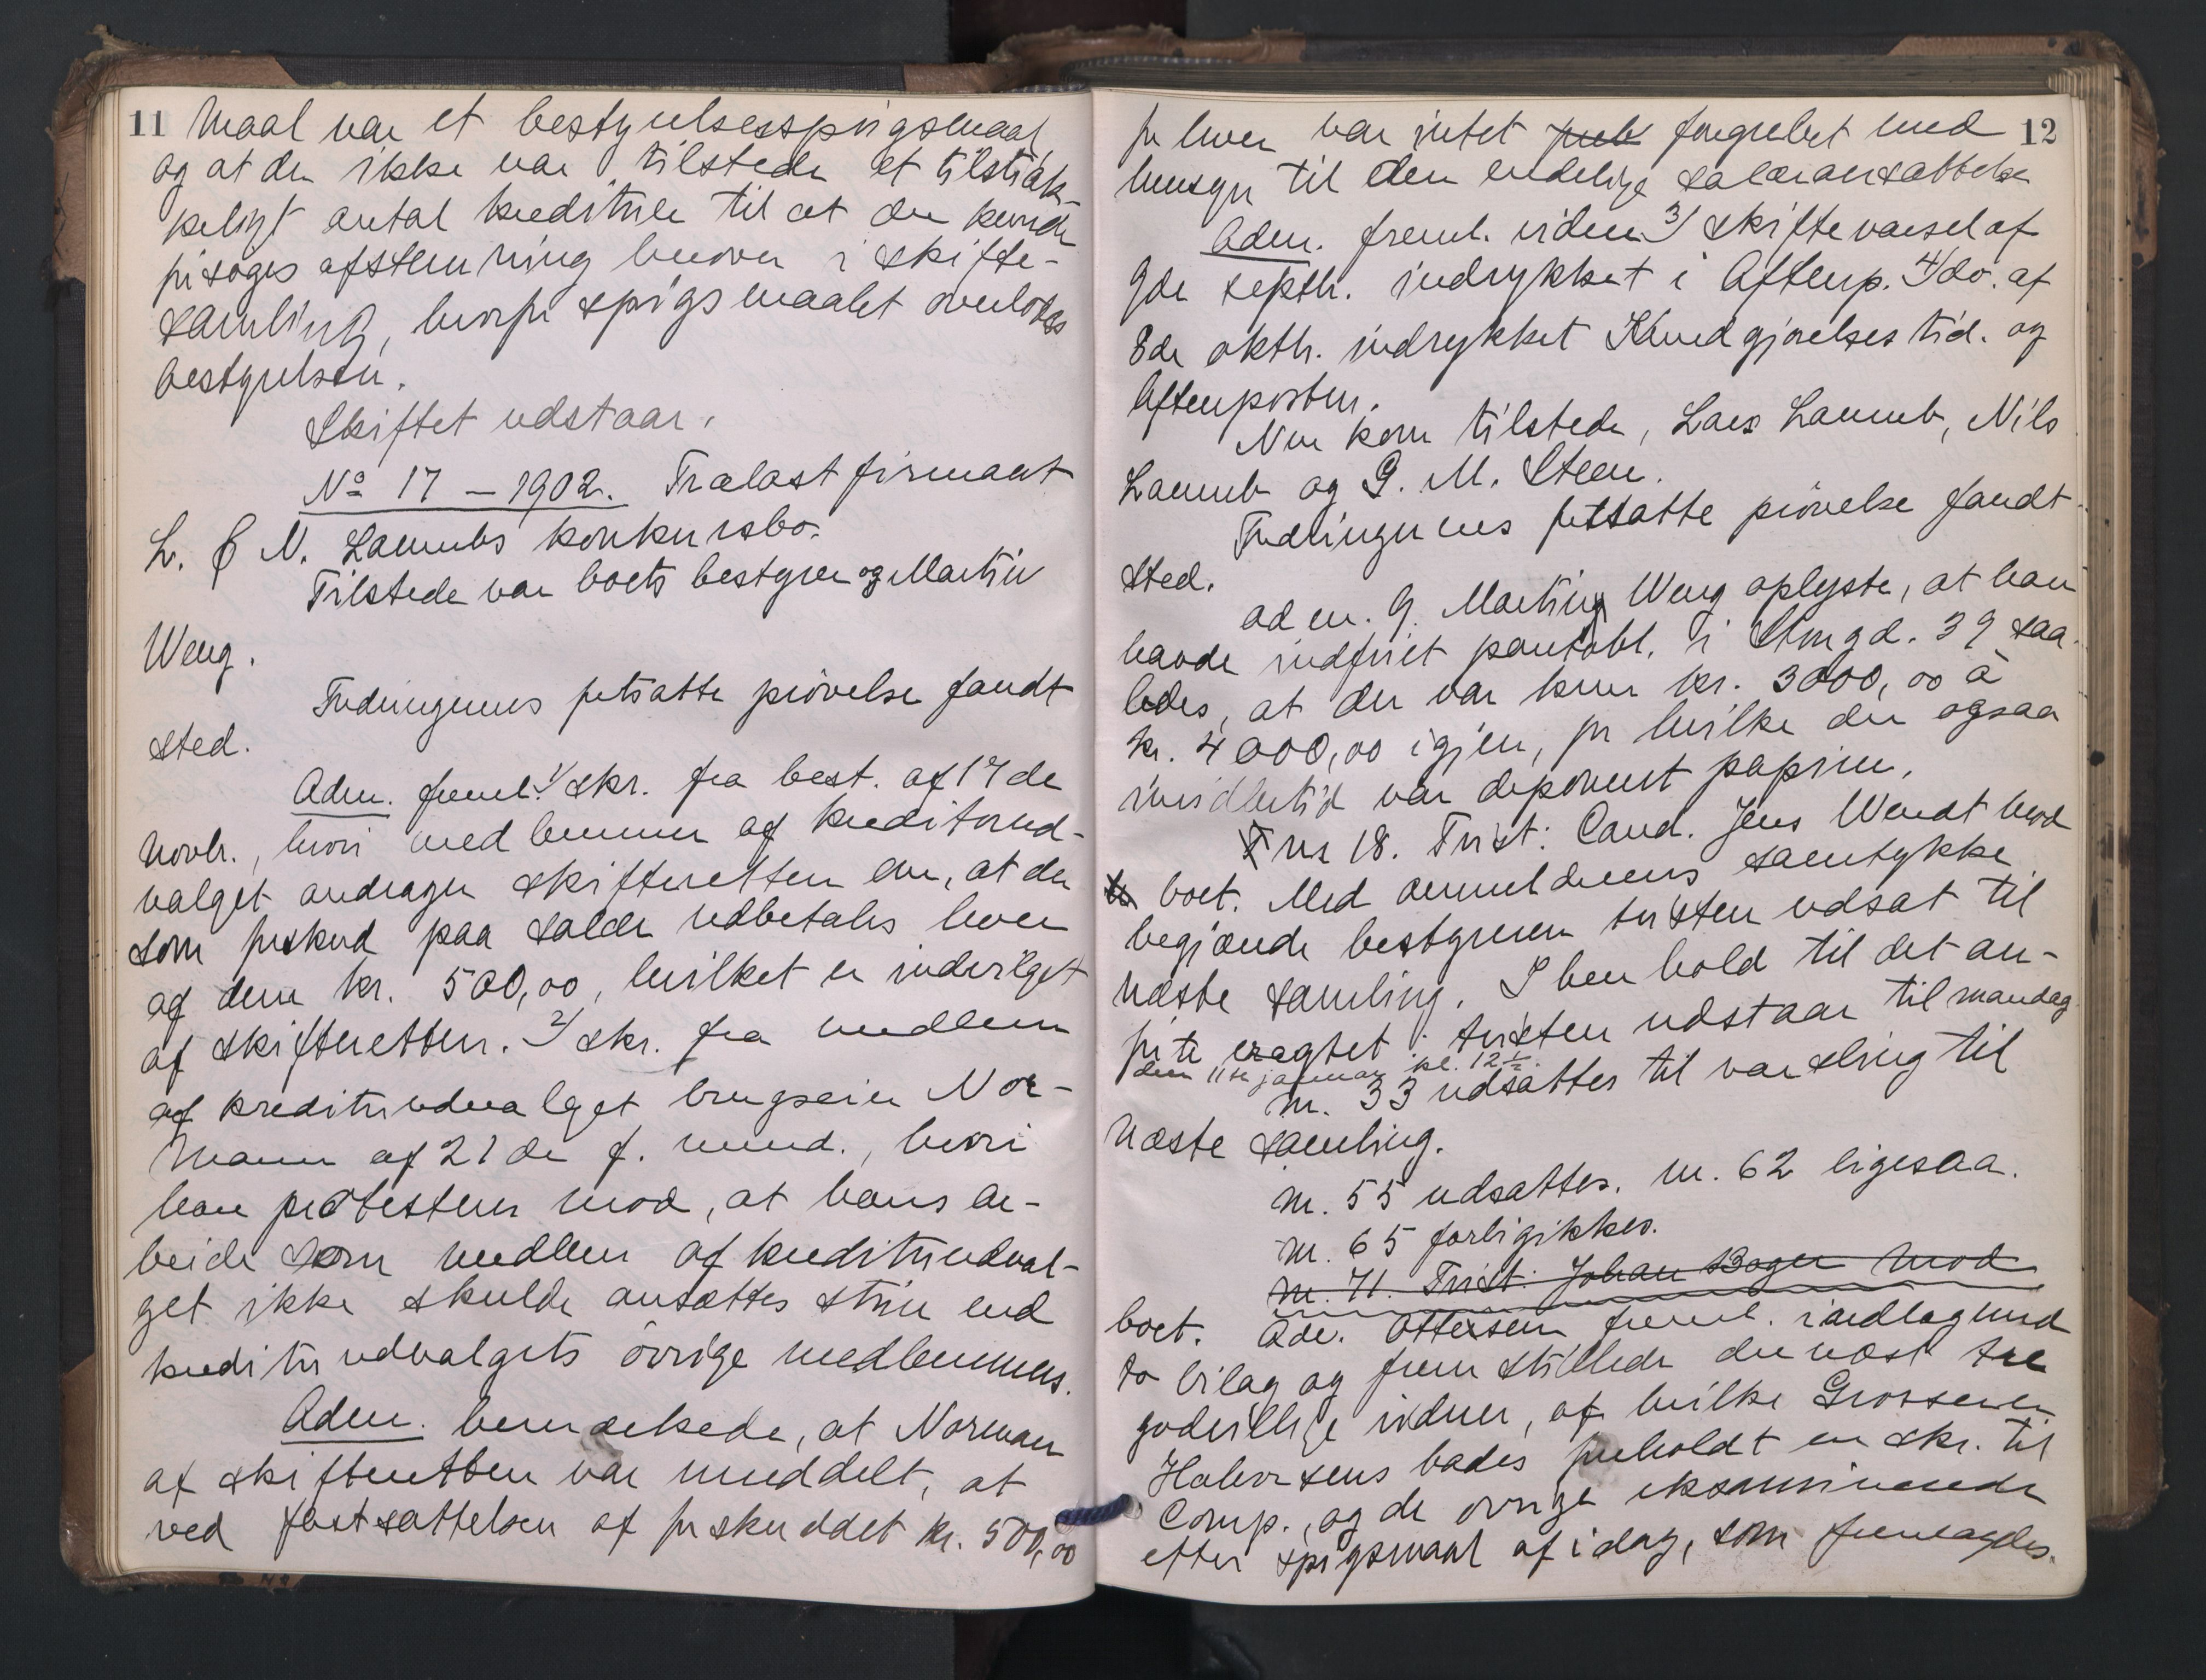 11
maal var et bestyrelsesspørgsmaal
og at der ikke var tilstede et tilstræk-
keligt antal kreditorer til at der kunde
forsøges afstemning herover i skifte-
samling, hvorfor spørgsmaalet overlodes
bestyrelsen.
Skiftet udstaar.
No 17 – 1902. Trælastfirmaet
L. & N. Laumbs konkursbo.
Tilstede var boets bestyrer og Martin
Weng.
Fordringernes fortsatte prøvelse fandt
sted.
Adm. freml. 1/ skr. fra best. af 17de
novbr., hvori medlemmer af kreditorud-
valget andrager skifteretten om, at der
som forskud paa salær udbetales hver
af dem kr. 500,00, hvilket er indvilget
af skifteretten. 2/ skr. fra medlem
af kreditorudvalget brugseier Nor-
mann af 21de f. mnd., hvori
han protesterer mod, at hans ar-
beide som medlem af kreditorudval-
get ikke skulde ansættes større end
kreditorudvalgets övrige medlemmers.
Adm. bemærkede, at Norman
af skifteretten var meddelt, at
ved fastsættelsen af forskuddet kr. 500,00
12
for hver var intet foregrebet med
hensyn til den endelige salæransættelse
Adm. freml. videre 3/ skiftevarsel af
9de septbr. indrykket i Aftenp. 4/ do. af
8de oktbr. indrykket Kundgjørelsestid. og
Aftenposten.
Nu kom tilstede, Lars Laumb, Nils
Laumb og G. M. Steen.
Fordringernes fortsatte prøvelse fandt
sted.
ad nr. 9. Martin Weng oplyste, at han
havde indfriet pantobl. i Strmgd. 39 saa-
ledes, at der var kun kr. 3000,00 à
kr. 4000,00 igjen, for hvilke der ogsaa
imidlertid var deponeret papirer.
nr 18. Tvist: Cand. Jens Wendt mod
boet. Med anmelderens samtykke
begjærede bestyreren tvisten udsat til
næste samling. I henhold til det an-
førte eragtet: tvisten udstaar til mandag
den 11te januar kl. 12½.
nr. 33 udsættes til varsling til
næste samling.
nr. 55 udsættes. nr. 62 ligesaa.
nr. 65 forligikkes.
nr. 71. Tvist: Johan Boger mod
boet. Adv. Ottersen freml. indlæg med
to bilag og fremstillede dernæst tre
godvillige vidner, af hvilke Grosserer
Halvorsens bades foreholdt en skr. til
Comp., og de øvrige eksamineredes
efter spørgsmaal af idag, som fremlagdes.